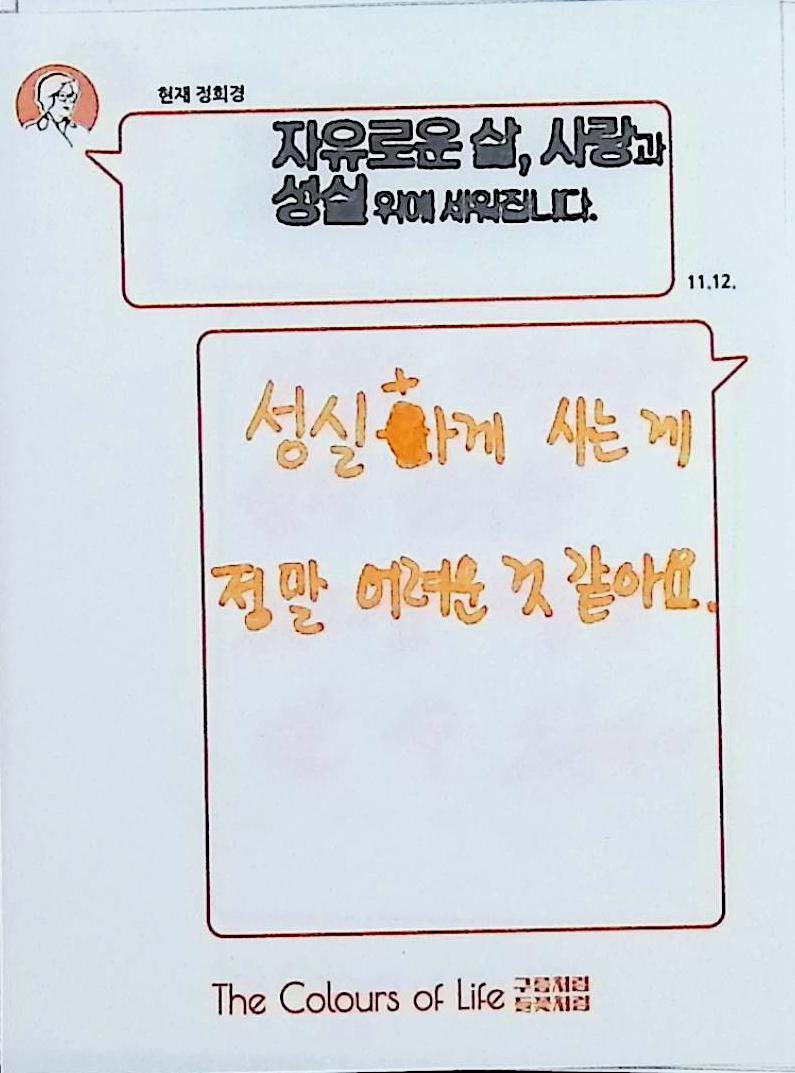 현재 정희경
자유로운 삶, 사랑과
성실 위에 세워집니다.
11.12.
성실하게 사는 게
정말 어려운 것 같아요.
The Colours of Life 구름처럼
들꽃처럼